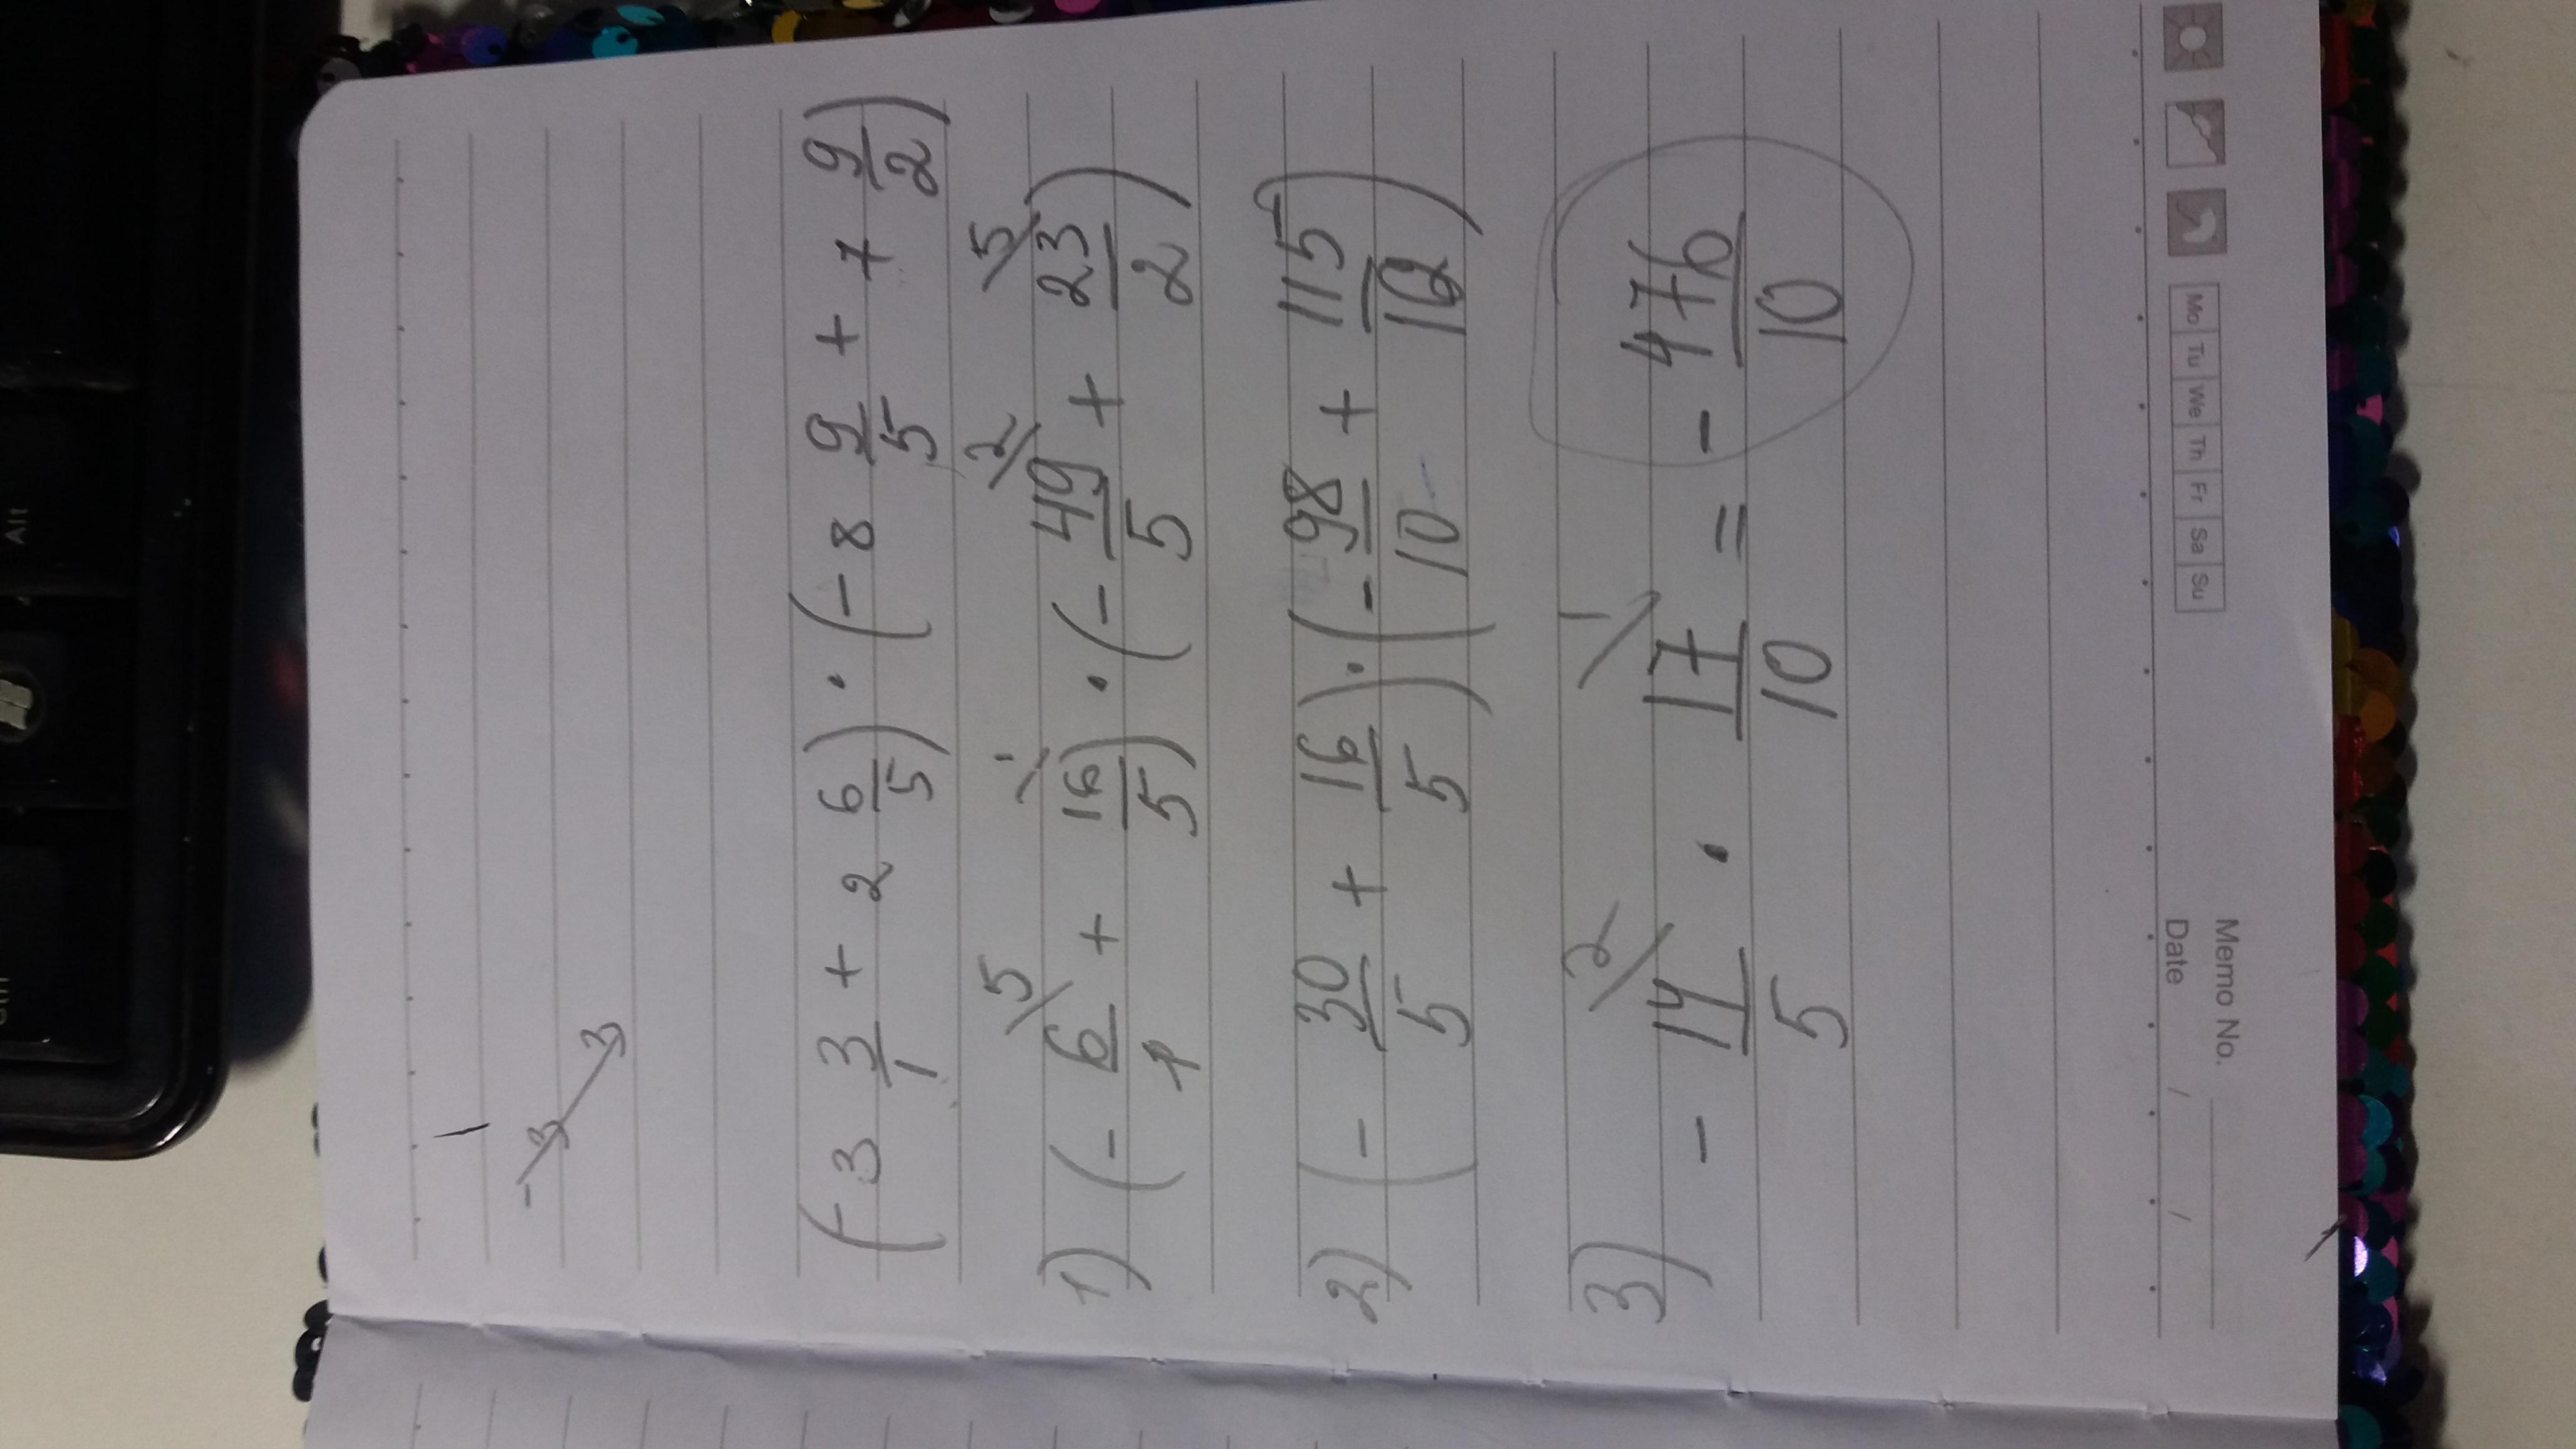 Memo No.
Date / /
Mo Tu We Th Fr Sa Su
-3 3
(-3 3/1 + 2 6/5) · (-8 9/5 + 7 9/2)
1) (- 6/1 \5 + 16/5 \1) · (- 49/5 \2 + 23/2 \5)
2) (- 30/5 + 16/5) · (- 98/10 + 115/10)
3) - 14/5 \2 · 17/10 \1 = - 476/10
Alt
Ctrl